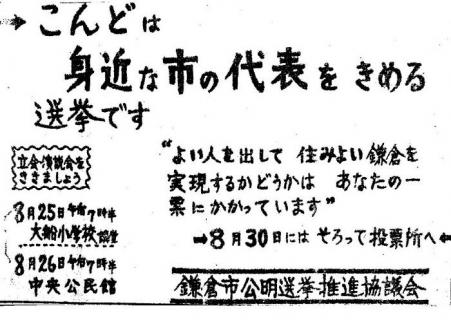 →こんどは
身近な市の代表をきめる
選挙です
立会演説会を
ききましょう
8月25日午后7時半
大船小学校講堂
8月26日午后7時半
中央公民館
“よい人を出して 住みよい鎌倉を
実現するかどうかは あなたの一
票にかかっています”
→8月30日には そろって投票所へ←
鎌倉市公明選挙推進協議会